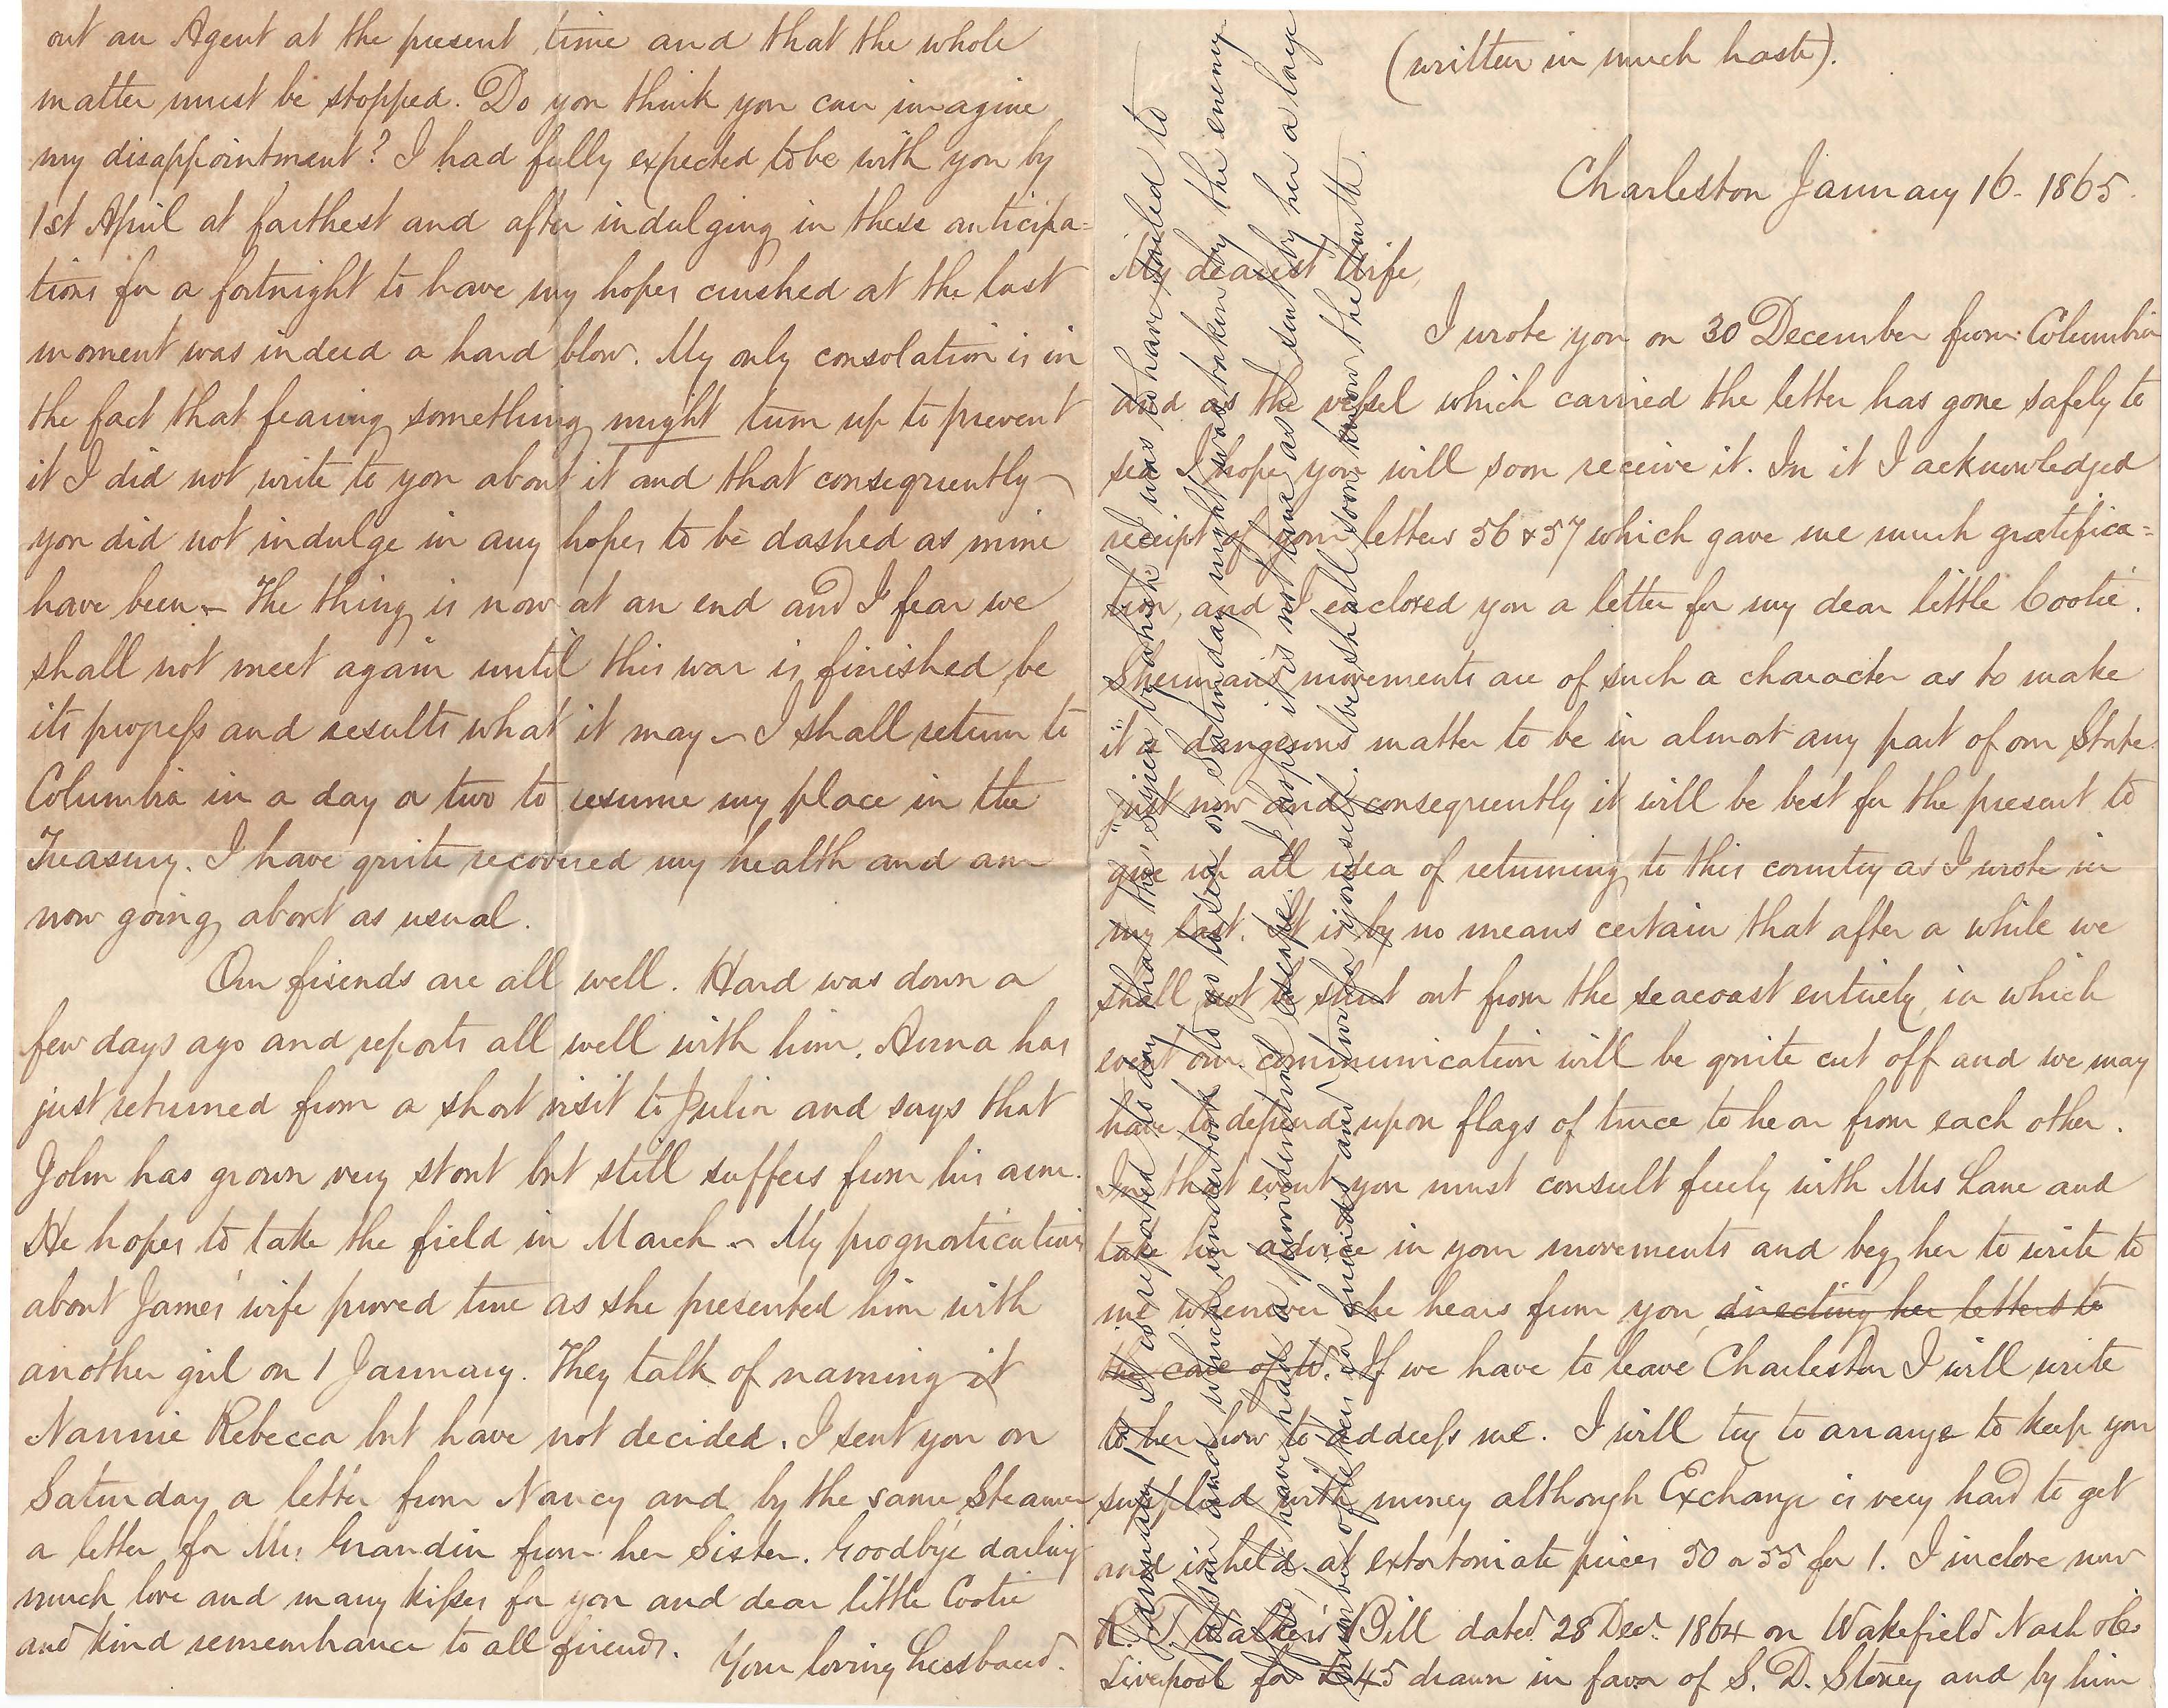 (written in much haste).
Charleston January 16. 1865.
My dearest Wife,
I wrote you on 30 December from Columbia
and as the vessel which carried the letter has gone safely to
sea I hope you will soon receive it. In it I acknowledged
receipt of your letters 56 & 57 which gave me much gratifica=
tion, and I enclosed you a letter for my dear little Cootie.
Sherman's movements are of such a character as to make
it a dangerous matter to be in almost any part of our State
just now and consequently it will be best for the present to
give up all idea of returning to this country as I wrote in
my last. It is by no means certain that after a while we
shall not be shut out from the seacoast entirely, in which
event our communication will be quite cut off and we may
have to depend upon flags of truce to hear from each other.
In that event you must consult freely with Mrs Lane and
take her advice in your movements and beg her to write to
me whenever she hears from you, directing her letters to
the care of W. If we have to leave Charleston I will write
to her how to address me. I will try to arrange to keep you
supplied with money although Exchange is very hard to get
and is held at extortionate prices 50 or 55 for 1. I inclose now
R. T. Walker's Bill dated 28 Decr. 1864 on Wakefield Nash & Co
Liverpool for £45 drawn in favor of S. D. Stoney and by him
out an Agent at the present time and that the whole
matter must be stopped. Do you think you can imagine
my disappointment? I had fully expected to be with you by
1st April at farthest and after indulging in these anticipa=
tions for a fortnight to have my hopes crushed at the last
moment was indeed a hard blow. My only consolation is in
the fact that fearing something might turn up to prevent
it I did not write to you about it and that consequently
you did not indulge in any hopes to be dashed as mine
have been — The thing is now at an end and I fear we
shall not meet again until this war is finished, be
its progress and results what it may — I shall return to
Columbia in a day or two to resume my place in the
Treasury. I have quite recovered my health and am
now going about as usual.
Our friends are all well. Hard was down a
few days ago and reports all well with him. Anna has
just returned from a short visit to Julia and says that
John has grown very stout but still suffers from his arm.
He hopes to take the field in March — My prognostications
about James' wife proved true as she presented him with
another girl on 1 January. They talk of naming it
Nannie Rebecca but have not decided. I sent you on
Saturday a letter from Nancy and by the same Steamer
a letter for Mrs Grandin from her Sister. Goodbye darling
much love and many kisses for you and dear little Cootie
and kind remembrance to all friends.
Your loving husband.
January 17. It is reported to day that the "Syren" by which I was to have sailed to
Nassau and which undertook to go to sea on Saturday night was taken by the enemy.
If so, I have had a providential escape. I hope it is not true as I sent by her a large
number of letters for friends and two for yourself. We shall soon know the truth.